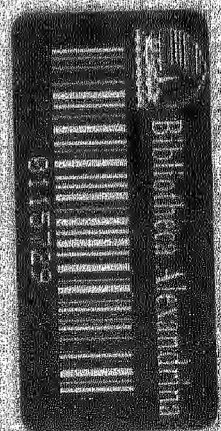 Bibliotheca Alexandrina
0115729